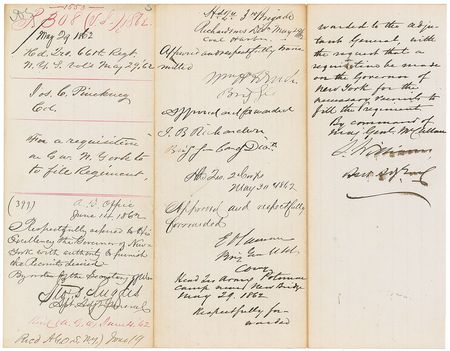 May 29 1862
Hd. Qrs. 66th Regt.
N.Y.S. Vols May 29, 62.
Jos. C. Pinckney
Col.
For a requisition
on Gov. N. York to
to fill Regiment.
(399) A. G. Office
June 14, 1862
Respectfully referred to His
Excellency the Governor of New
York with authority to furnish
the Recruits desired
By order of the Secretary of War
Asst. Adjt. General
Rec'd (A.G.O.) June 4. 62
Rec'd A.G.O. S.N.Y. June 19
Brigade
Richardson's Div. May
Approved and respectfully trans
mitted
Brig Gen
Approved and forwarded
I. B. Richardson
Brig Gen Comg Div.
Hd Qrs 2 Corps
May 30 1862
Approved and respectfully
forwarded
E V Sumner
Brig Gen USA
Comg
Head Qrs Army Potomac
Camp near New Bridge
May 29, 1862
Respectfully for-
warded
warded to the Adju
tant General, with
the request that a
requisition be made
on the Governor of
New York for the
necessary recruits to
fill the Regiment
By command of
Maj. Genl. McClellan
S. Williams
Asst. Adj. Genl